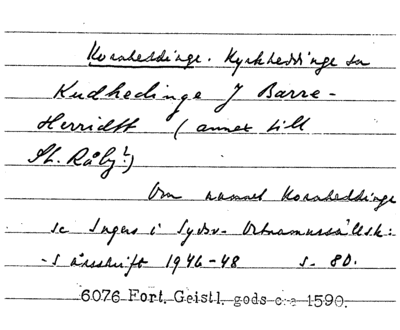 Kornheddinge. Kyrkheddinge sn
Kudhedinge J Barre-
Herridtt (annex till
St. Råby?)
Om namnet Kornheddinge
se Ingers i Sydsv. Ortnamnssällsk:
s årsskrift 1946-48 s. 80.
6076 Fort. Geistl. gods c:a 1590.